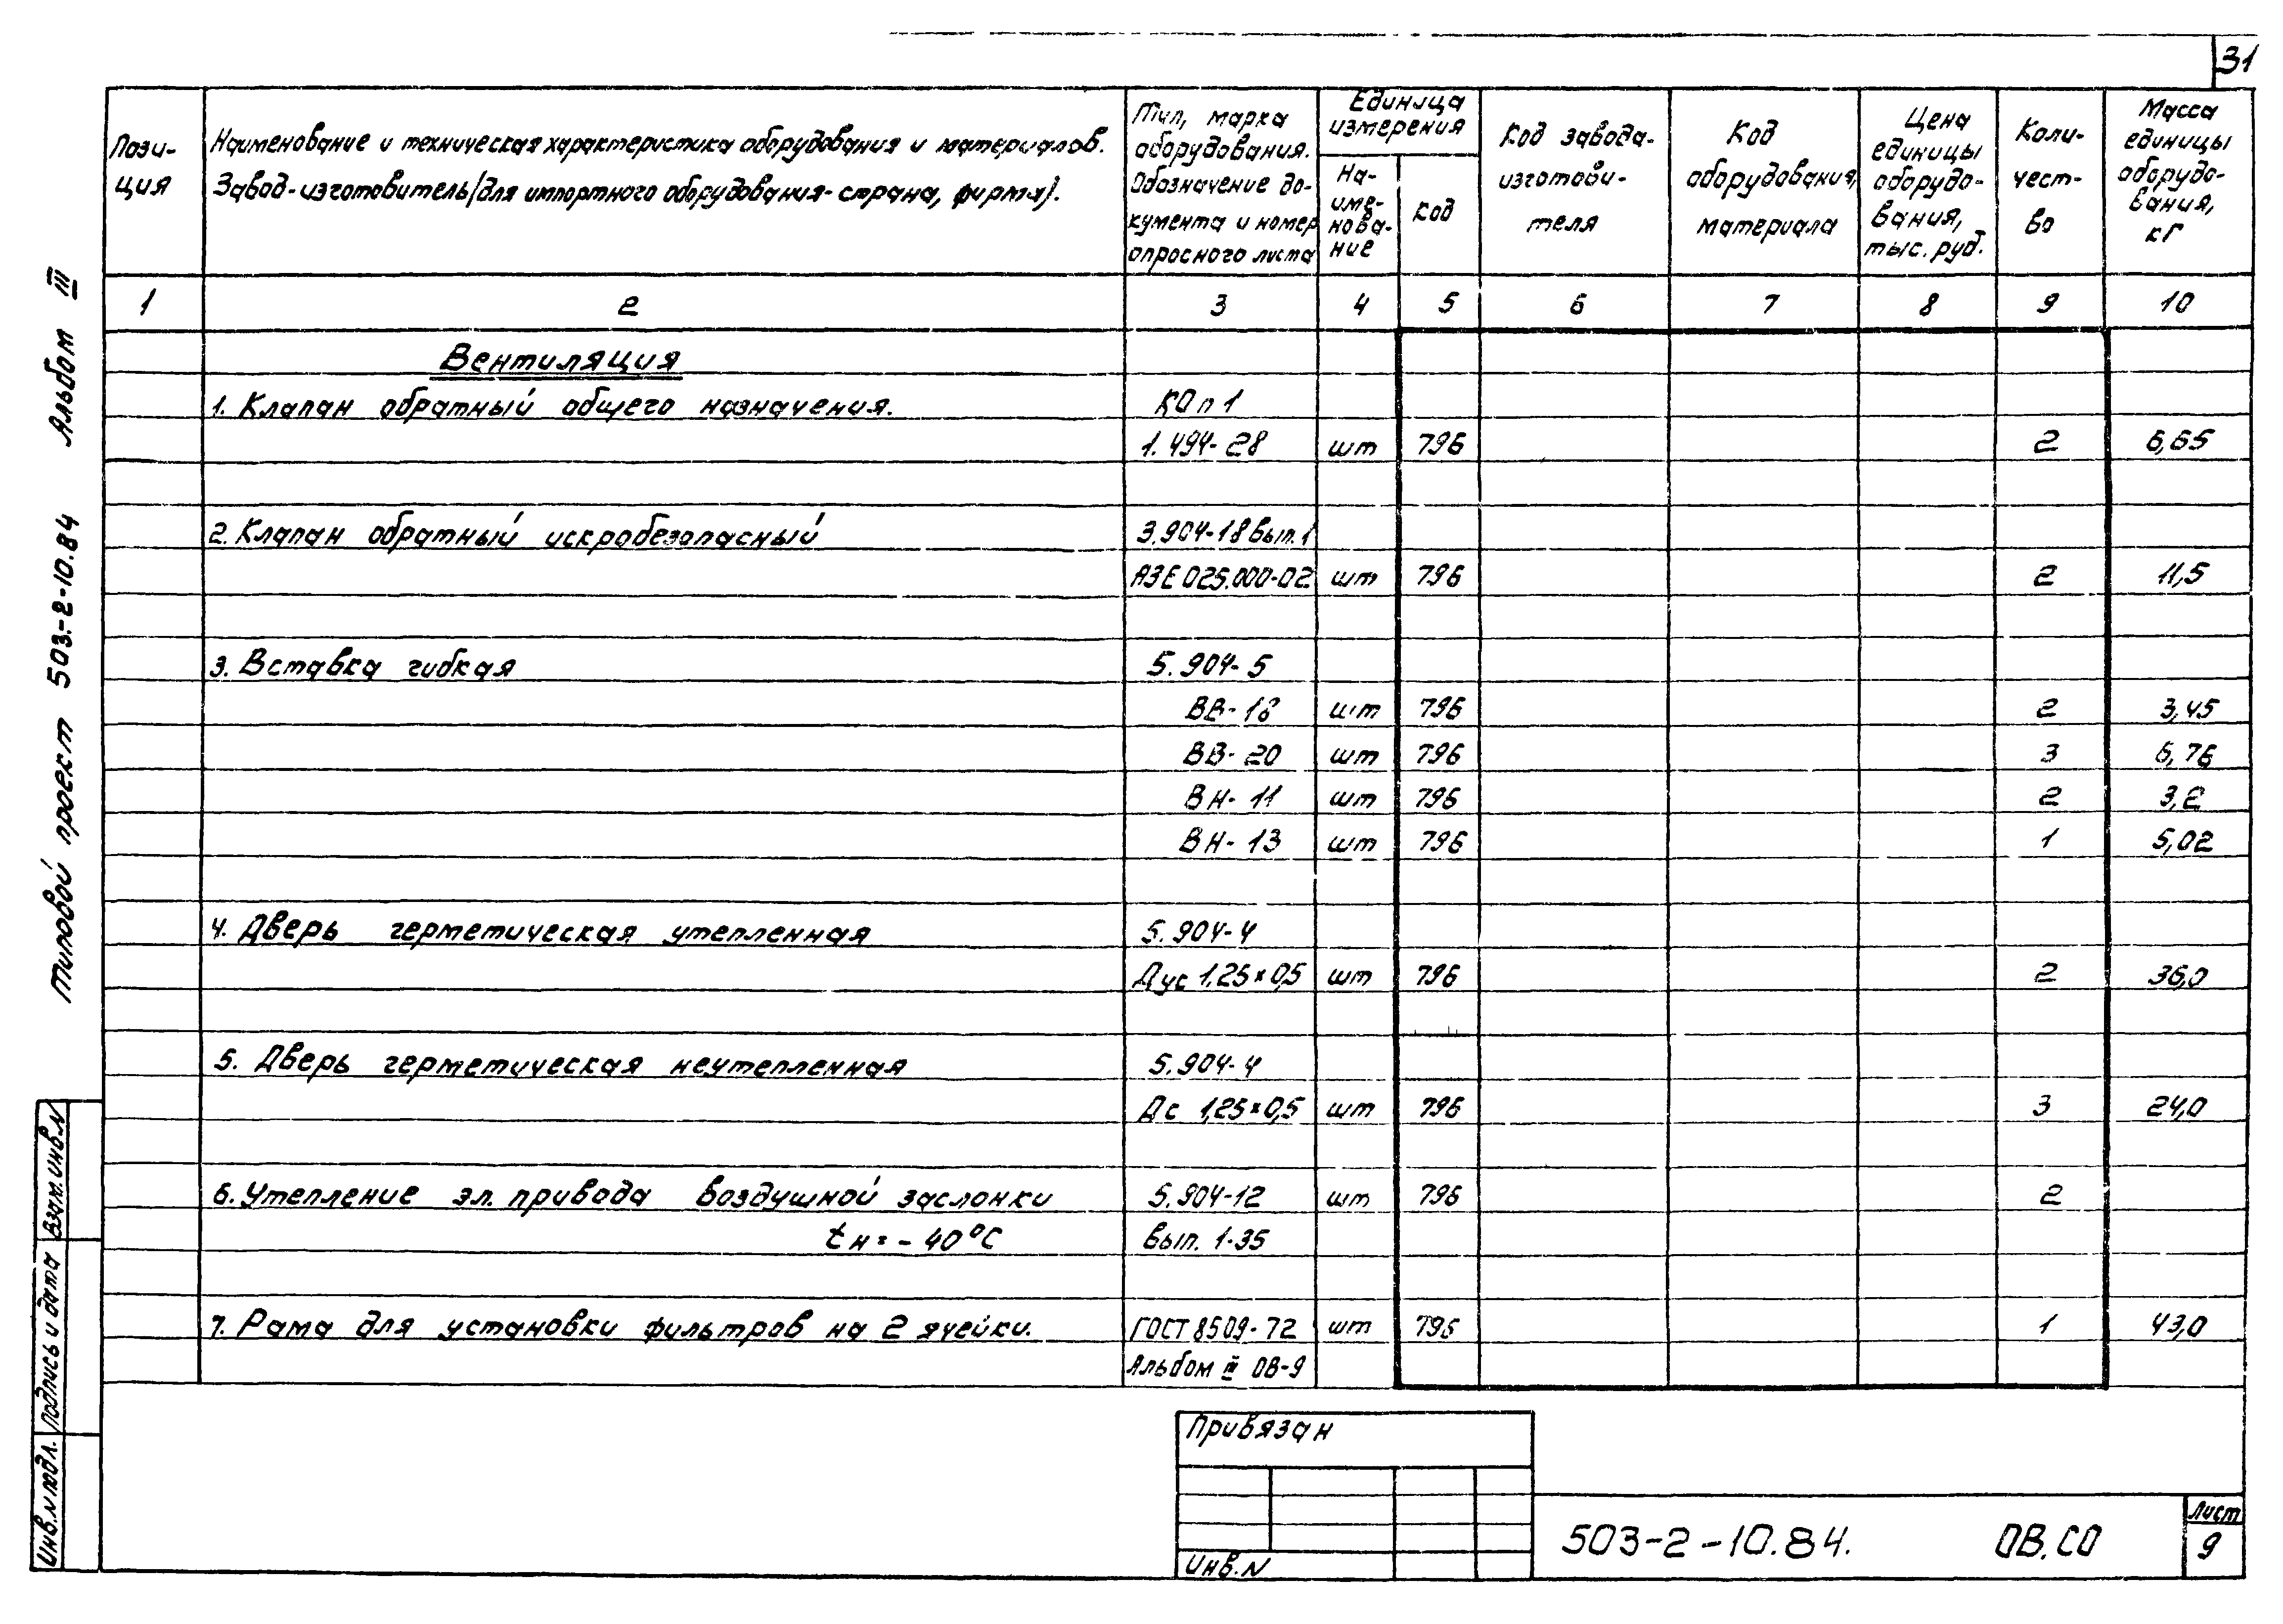 31
Пози-
ция
Наименование и техническая характеристика оборудования и материалов.
Завод-изготовитель (для импортного оборудования- страна, фирма).
Тип, марка
оборудования.
Обозначение до-
кумента и номер
опросного листа
Единица
измерения
На-
име-
нова-
ние
код
Код завода-
изготови-
теля
Код
оборудования,
материала
Цена
единицы
оборудо-
вания,
тыс. руб.
Коли-
чест-
во
Масса
единицы
оборудо-
вания,
кг
1 2 3 4 5 6 7 8 9 10
Вентиляция
1. Клапан обратный общего назначения. КОп 1
1.494-28 шт 796 2 6,65
2. Клапан обратный искробезопасный 3.904-18 вып.1
АЗЕ 025.000-02 шт 796 2 11,5
3. Вставка гибкая 5.904-5
ВВ-18 шт 796 2 3,45
ВВ-20 шт 796 3 6,76
ВН-11 шт 796 2 3,2
ВН-13 шт 796 1 5,02
4. Дверь герметическая утепленная 5.904-4
Дус 1,25×0,5 шт 796 2 36,0
5. Дверь герметическая неутепленная 5.904-4
Дс 1,25×0,5 шт 796 3 24,0
6. Утепление эл. привода воздушной заслонки 5.904-12 шт 796 2
tн = - 40°С вып. 1-35
7. Рама для установки фильтров на 2 ячейки. ГОСТ 8509-72 шт 796 1 43,0
Альбом II ОВ-9
Привязан
Инв.N
503-2-10.84. ОВ.СО
Лист
9
Типовой проект 503-2-10.84 Альбом III
Взам.инв.N
Подпись и дата
Инв.N подл.